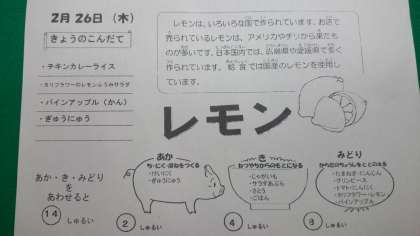 2月26日（木）
きょうのこんだて
・チキンカレーライス
・カリフラワーのレモンふうみサラダ
・パインアップル（かん）
・ぎゅうにゅう
レモンは、いろいろな国で作られています。お店で
売られているレモンは、アメリカやチリから来たも
のが多いです。日本国内では、広島県や愛媛県で多く
作られています。給食では国産のレモンを使用し
ています。
レモン
あか・き・みどり
を
あわせると
14 しゅるい
あか
ち・にく・ほねをつくる
・けいにく
・ぎゅうにゅう
2 しゅるい
き
ねつやちからのもとになる
・じゃがいも
・サラダあぶら
・さとう
・ごはん
4 しゅるい
みどり
からだのちょうしをととのえる
・たまねぎ・にんじん
・グリンピース
・トマト・にんにく
・カリフラワー・レモン
・パインアップル
しゅるい